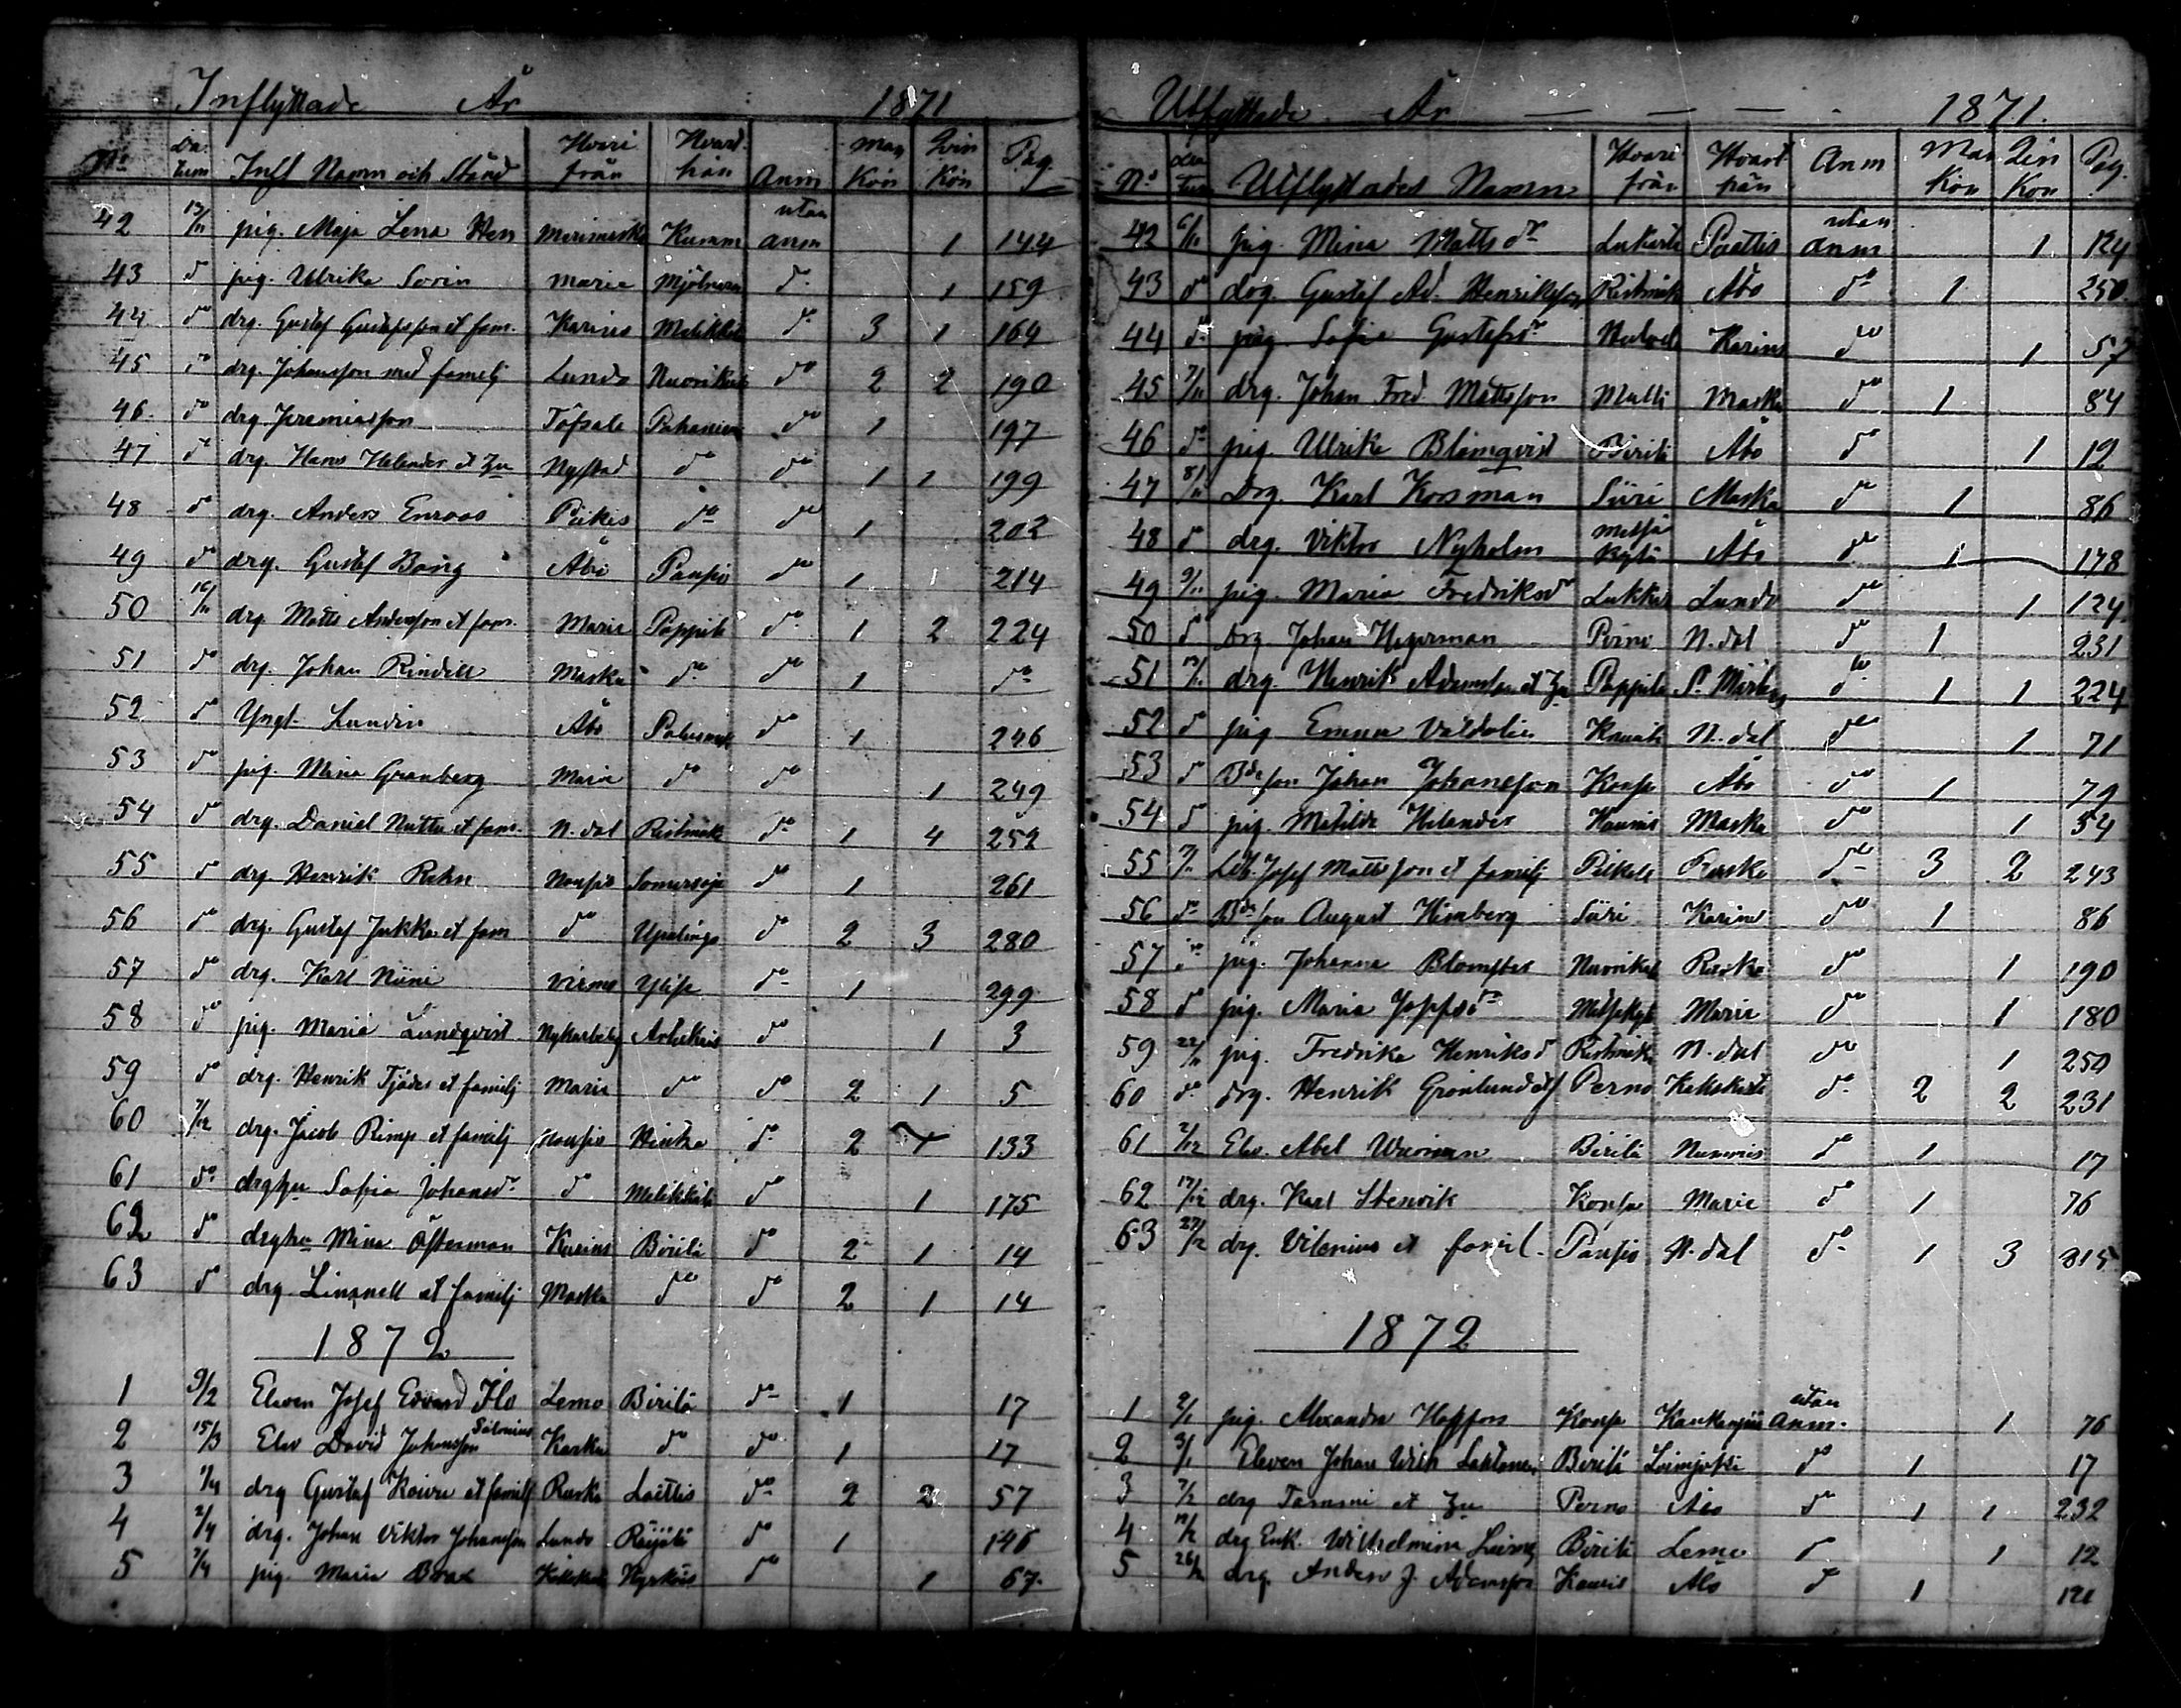 Inflyttade År 1871
No Datum Infl Namn och Stånd Hvari från Hvart hän Anm Man Kön Qvin Kön Pag.
42 13/11 pig. Maja Lena Hen Merimasku Kumm utan anm 1 144
43 do pig. Ulrika Sorin Marie Mjölnare do 1 159
44 do drg. Gustaf Gustafsson et fam. Karins Melikkä do 3 1 164
45 do drg. Johansson med familj Lundo Nuorikk do 2 2 190
46 do drg. Jeremiasson Töfsala Pahaniem do 1 197
47 do drg. Hans Helander et hu Nystad do do 1 1 199
48 do drg. Anders Enroos Piikis do do 1 202
49 do drg. Gustaf Boing Åbo Paupis do 1 1 214
50 16/11 drg Matts Andersson et fam. Marie Pappila do 1 2 224
51 do drg. Johan Rindell Masku do do 1 do
52 do Yngl. Lundin Åbo do 1 246
53 do pig. Mina Granberg Marie do do 1 249
54 do drg. Daniel Nuttu et fam. N. dal Ristimäki do 1 4 252
55 do drg. Henrik Rehn Nousis Somersoja do 1 261
56 do drg. Gustaf Jukka et fam do Upalinga do 2 3 280
57 do drg. Karl Niini Virmo do 1 299
58 do pig. Maria Lundqvist Nykarleby Artukais do 1 3
59 do drg. Henrik Tjäder et familj Marie do do 2 1 5
60 7/12 drg. Jacob Rimp et familj Nousis do 2 133
61 do drghu Sofia Johansdr do Melikkälä do 1 175
62 do drghu Mina Österman Karins Böritä do 2 1 14
63 do drg. Linnnell et familj Masku do do 2 1 14
1872
1 9/2 Eleven Josef Edvard Flo Lemo Birilä do 1 17
2 15/3 Elev David Johansson Salonius Karku do do 1 17
3 1/4 drg Gustaf Koivu et familj Rusko Laittis do 2 2 57
4 2/4 drg. Johan Viktor Johansson Lundo do 1 146
5 7/4 pig. Maria Brax do 1 67
Utflyttade År 1871.
No datum Utflyttades Namn Hvari från Hvart hän Anm Man Kön Qin Kön Pag.
42 6/11 pig. Mina Mattsdr Paattis utan anm 1 124
43 do drg. Gustaf Ad. Henriksson Ristimäk Åbo do 1 250
44 do pig. Sofia Gustafsdr Karins do 1 57
45 7/11 drg. Johan Fred. Mattsson Mälli Masku do 1 84
46 do pig. Ulrika Blomqvist Birilä Åbo do 1 12
47 8/11 Drg. Karl Korsman Siiri Masku do 1 86
48 do drg. Viktor Nyholm Metsäkylä Åbo do 1 178
49 9/11 pig. Maria Fredriksdr Lukkar Lundo do 1 124
50 do Drg Johan Herman Perno N. dal do 1 231
51 drg. Henrik Adamsson et hu Pappila S. Mårtens do 1 1 224
52 do pig. Emma Valdolin N. dal do 1 71
53 do Bdeson Johan Johansson Konsa Åbo do 1 79
54 do pig. Matilda Helander Kauris Masku do 1 54
55 Ldb. Josef Mattsson et familj Rusko do 3 2 243
56 do Bdeson August Himberg Siiri Karins do 1 86
57 do pig. Johanna Blomster Nuorikk Rusko do 1 190
58 do pig. Maria Josefsdr Metsäkyl Marie do 1 180
59 22/11 pig. Fredrika Henriksd Ristimäk N. dal do 1 250
60 do drg. Henrik Grönlund et f Perno Kakskerta do 2 2 231
61 2/12 Elev. Abel Vuorinen Birilä Nummis do 1 17
62 17/12 drg. Karl Stenvik Konsa Marie do 1 76
63 27/12 drg. Vilenius et famil. Paupis N. dal do 1 3 315
1872
1 2/1 pig. Alexandra Hoffrén Konsa Kankanpää utan Anm. 1 76
2 3/1 Eleven Johan Wilh Lahtonen Birilä Loimjoki do 1 17
3 7/2 drg Tammi et hu Perno Åbo do 1 1 232
4 drg Enk. Wilhelmina Leino Birilä Lemo do 1 12
5 26/2 drg. Anders J. Adamsson Kauris Åbo do 1 121